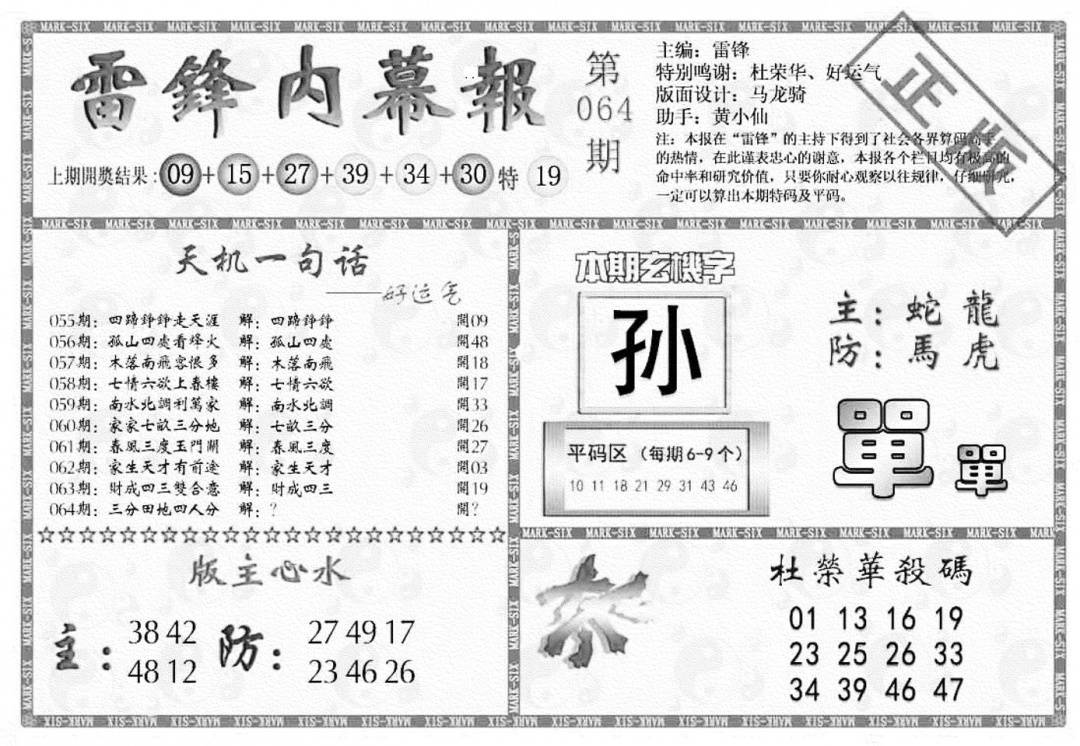 雷鋒内幕報
第064期
主编：雷锋
特别鸣谢：杜荣华、好运气
版面设计：马龙骑
助手：黄小仙
注：本报在“雷锋”的主持下得到了社会各界算码高手
的热情，在此谨表忠心的谢意，本报各个栏目均有极高的
命中率和研究价值，只要你耐心观察以往规律，仔细研究，
一定可以算出本期特码及平码。
正版
上期開獎结果：09+15+27+39+34+30特 19
天机一句话
——好运气
055期：四蹄錚錚走天涯 解：四蹄錚錚 開09
056期：孤山四處看烽火 解：孤山四處 開48
057期：木落南飛客恨多 解：木落南飛 開18
058期：七情六欲上春樓 解：七情六欲 開17
059期：南水北調利萬家 解：南水北調 開33
060期：家家七畝三分地 解：七畝三分 開26
061期：春風三度玉門關 解：春風三度 開27
062期：家生天才有前途 解：家生天才 開03
063期：財成四三雙合意 解：財成四三 開19
064期：三分田地四人分 解：？ 開？
☆☆☆☆☆☆☆☆☆☆☆☆☆☆☆☆☆☆☆☆☆☆☆
本期玄機字
孙
主：蛇 龍
防：馬 虎
單 單
平码区（每期6-9个）
10 11 18 21 29 31 43 46
版主心水
主：38 42
48 12
防：27 49 17
23 46 26
杀
杜榮華殺碼
01 13 16 19
23 25 26 33
34 39 46 47
MARK-SIX